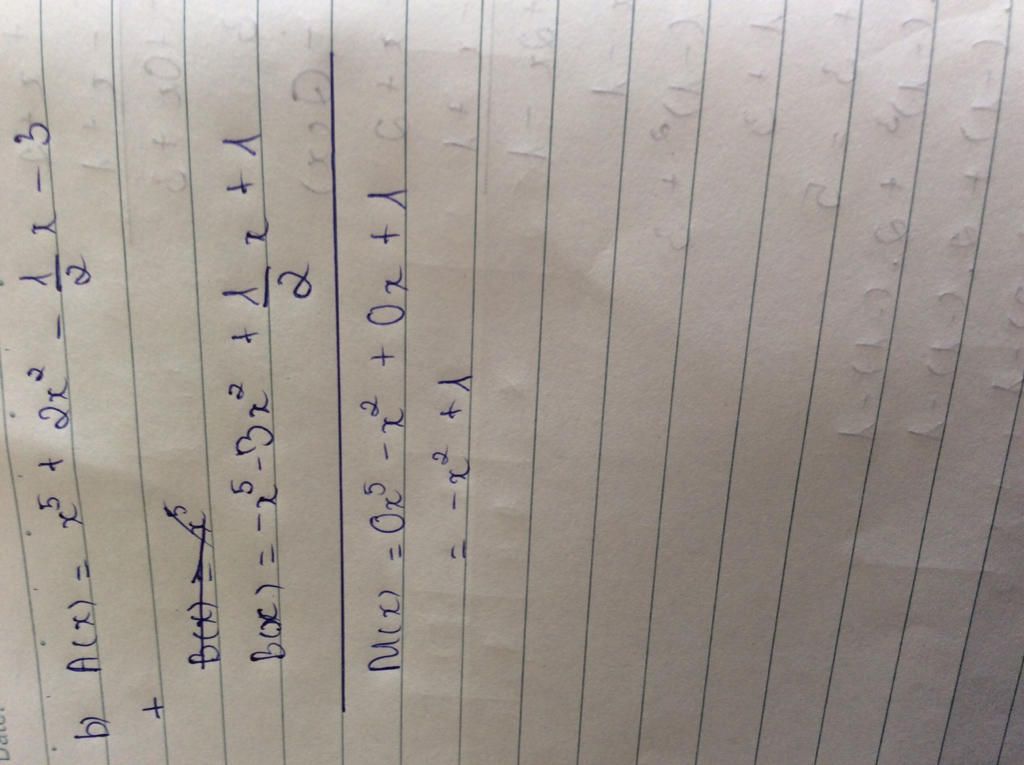 Date:
b) A(x) = x⁵ + 2x² - 1/2 x - 3
+
B(x) = x⁵
B(x) = -x⁵ - 3x² + 1/2 x + 1
M(x) = 0x⁵ - x² + 0x + 1
= -x² + 1